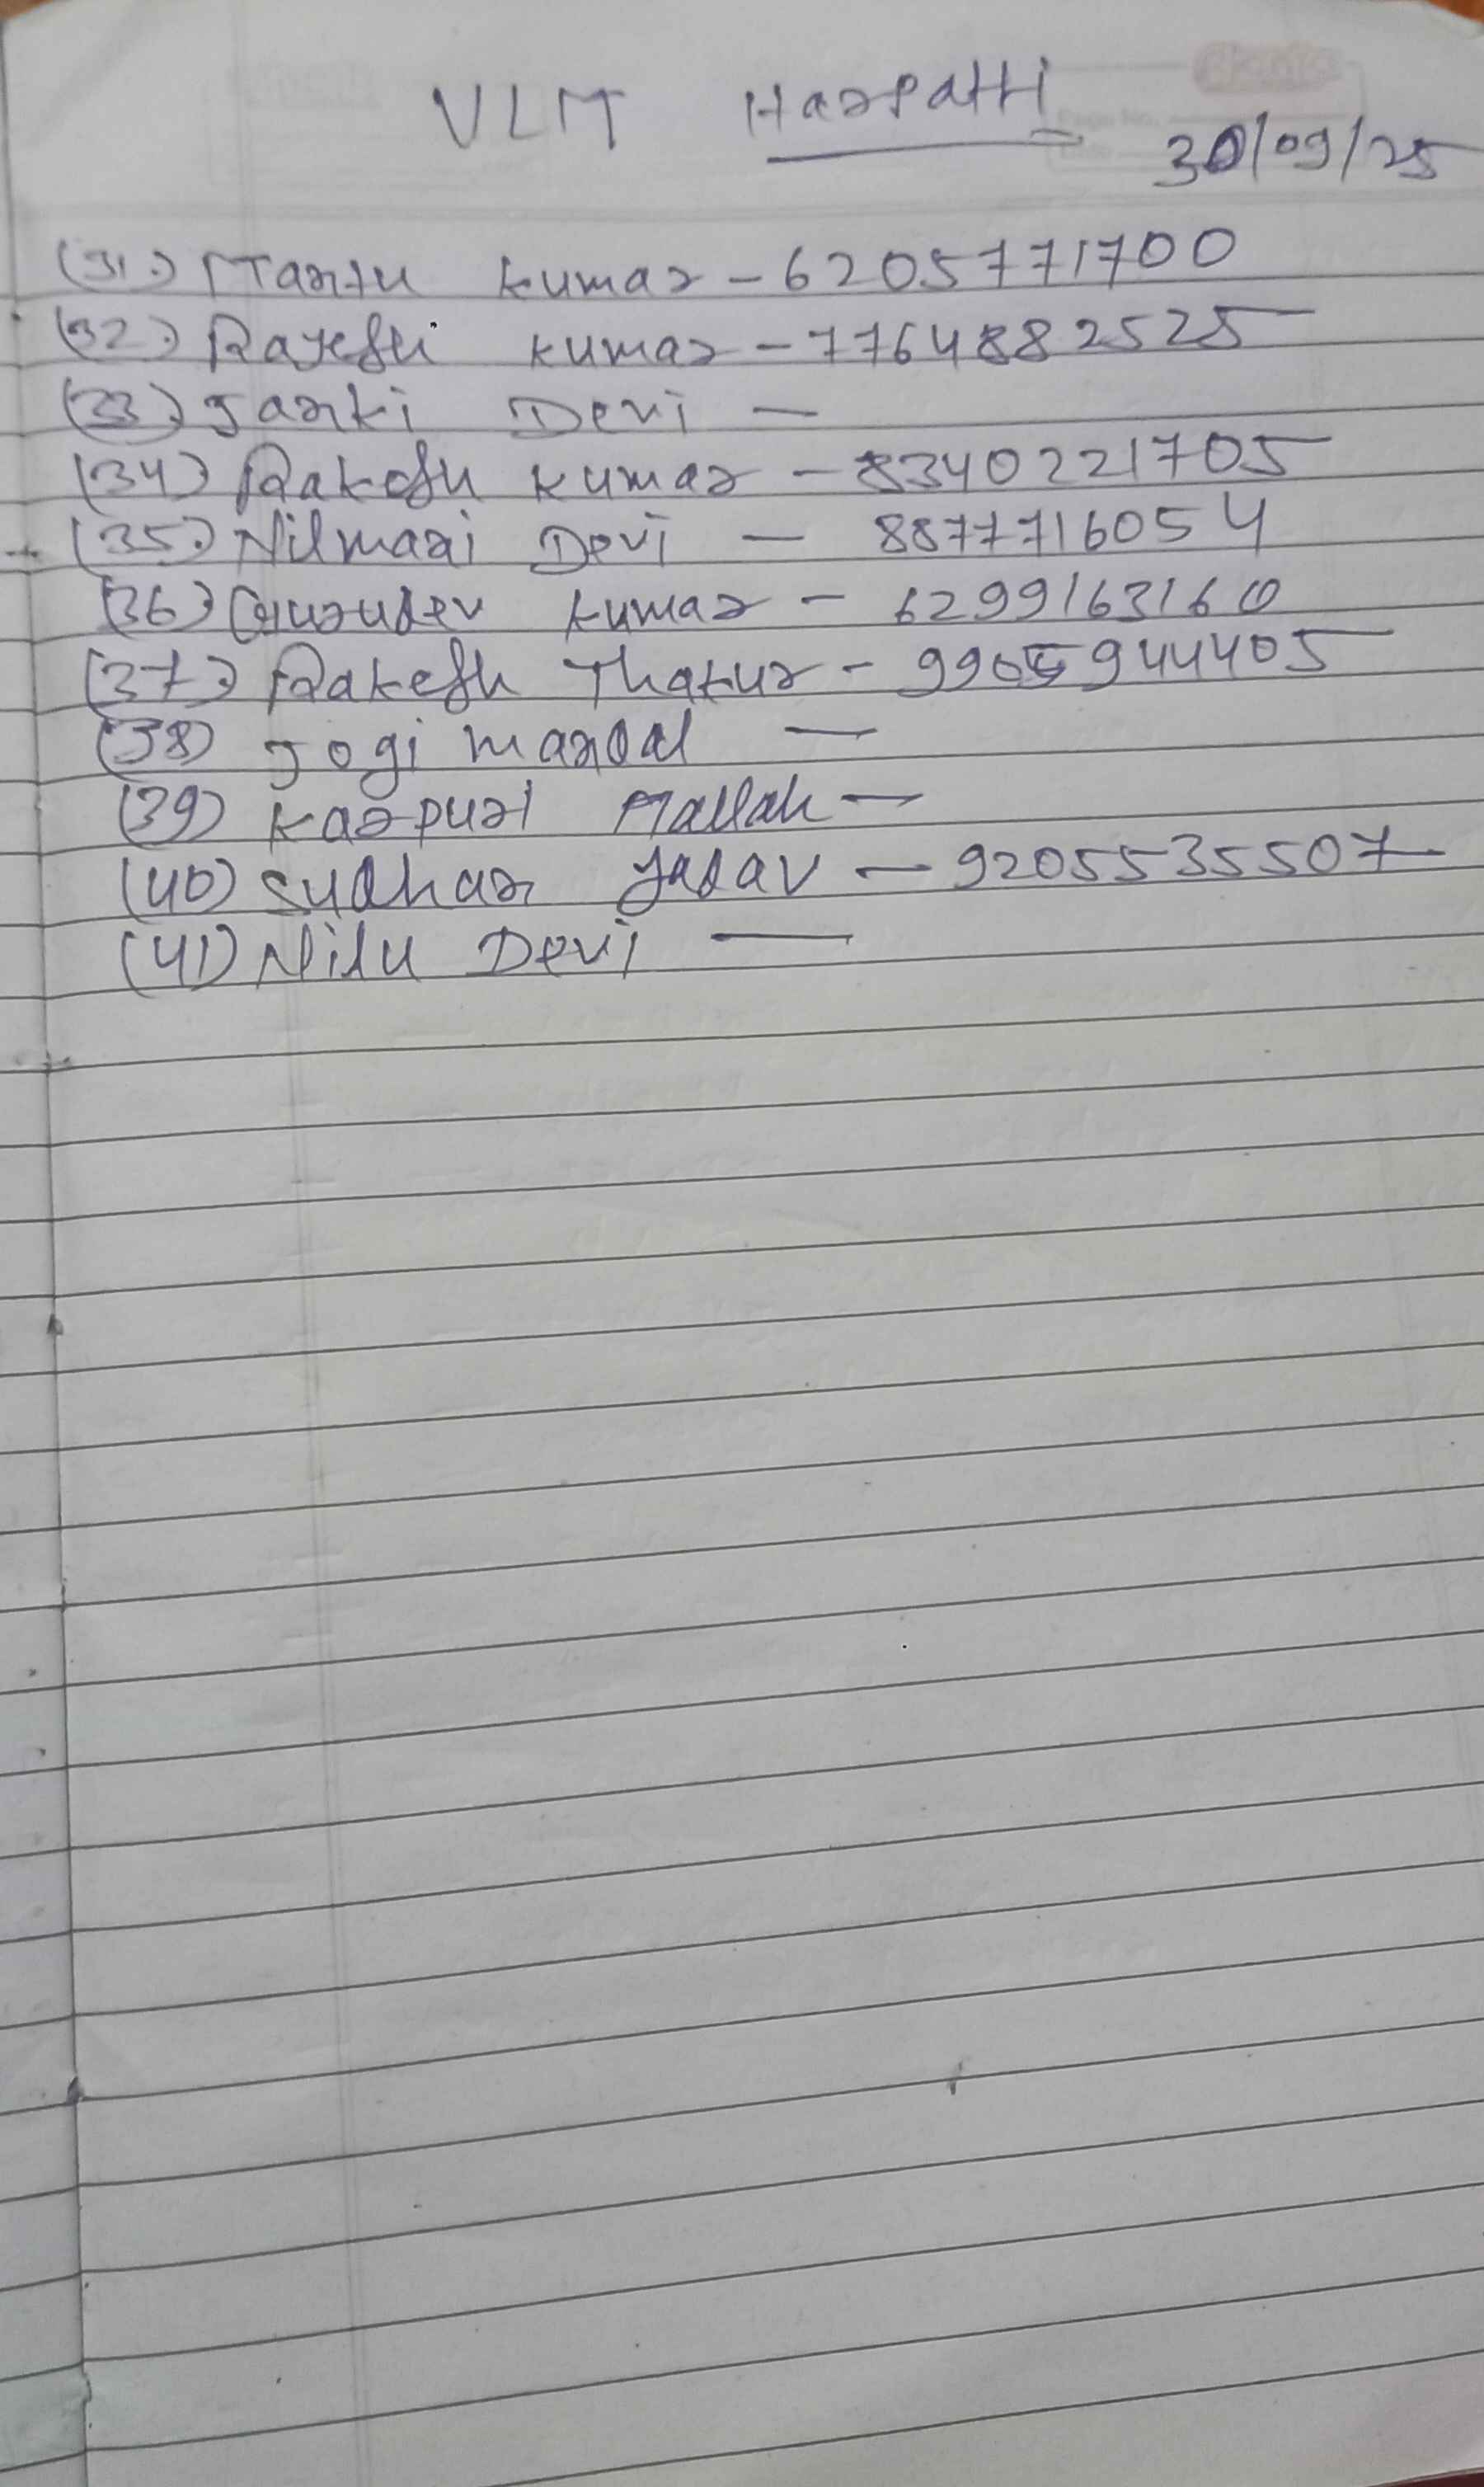 VLM Harpatti
30/09/25
(31.) Mantu Kumar - 6205771700
(32.) Rajesh Kumar - 7764882525
(33.) Janki Devi -
(34) Rakesh Kumar - 8340221705
(35.) Nilmani Devi - 8877716054
(36) Gurudev Kumar - 6299163160
(37.) Rakesh Thakur - 9905944405
(38) Jogi Mandal -
(39) Karpuri Mallah -
(40) Sudhan Yadav - 9205535507
(41) Nilu Devi -